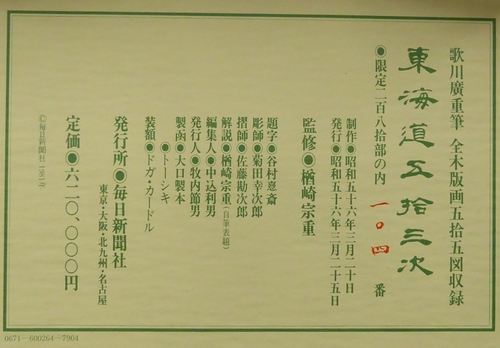 歌川廣重筆 全木版画五拾五図収録
東海道五拾三次
●限定二百八拾部の内 一〇四 番
制作●昭和五十六年三月二十日
発行●昭和五十六年三月二十五日
監修●楢崎宗重
題字●谷村憙斎
彫師●菊田幸次郎
摺師●佐藤勘次郎
解説●楢崎宗重(自筆表組)
編集人●中込利男
発行人●牧内節男
製函●大口製本
●トーシキ
装額●ドガ・カードル
発行所●毎日新聞社
東京・大阪・北九州・名古屋
定価●六二〇、〇〇〇円
©毎日新聞社 1981年
0671-600264-7904